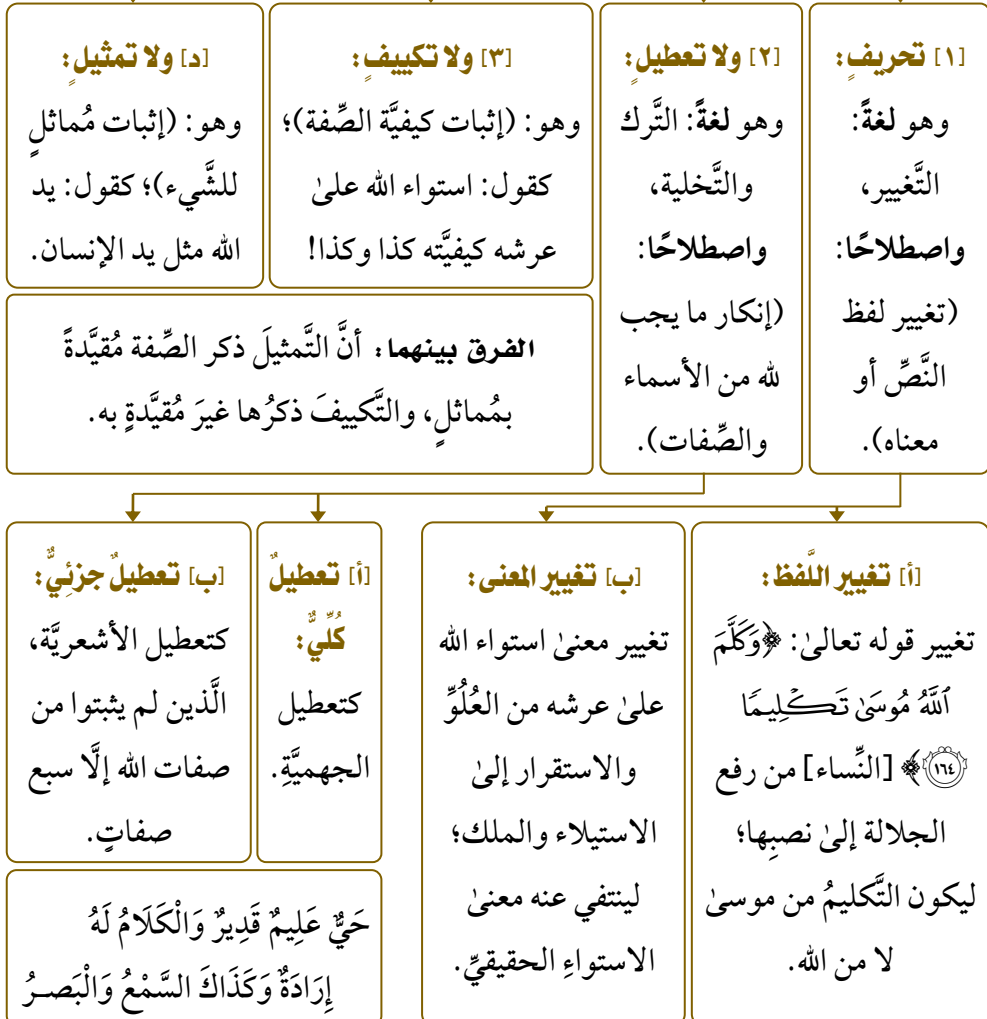 [١] تحريفٍ:
وهو لغةً:
التَّغيير،
واصطلاحًا:
(تغيير لفظ
النَّصِّ أو
معناه).
[٢] ولا تعطيلٍ:
وهو لغةً: التَّرك
والتَّخلية،
واصطلاحًا:
(إنكار ما يجب
لله من الأسماء
والصِّفات).
[٣] ولا تكييفٍ:
وهو: (إثبات كيفيَّة الصِّفة)؛
كقول: استواء الله علىٰ
عرشه كيفيَّته كذا وكذا!
[د] ولا تمثيلٍ:
وهو: (إثبات مُماثلٍ
للشَّيء)؛ كقول: يد
الله مثل يد الإنسان.
الفرق بينهما: أنَّ التَّمثيلَ ذكر الصِّفة مُقيَّدةً
بمُماثلٍ، والتَّكييفَ ذكرُها غيرَ مُقيَّدةٍ به.
[أ] تغيير اللَّفظ:
تغيير قوله تعالىٰ: ﴿وَكَلَّمَ
ٱللَّهُ مُوسَىٰ تَكۡلِيمٗا
١٦٤﴾ [النِّساء] من رفع
الجلالة إلىٰ نصبِها؛
ليكون التَّكليمُ من موسىٰ
لا من الله.
[ب] تغيير المعنى:
تغيير معنىٰ استواء الله
علىٰ عرشه من العُلُوِّ
والاستقرار إلىٰ
الاستيلاء والملك؛
لينتفي عنه معنىٰ
الاستواءِ الحقيقيِّ.
[أ] تعطيلٌ
كُلِّيٌّ:
كتعطيل
الجهميَّةِ.
[ب] تعطيلٌ جزئيٌّ:
كتعطيل الأشعريَّة،
الَّذين لم يثبتوا من
صفات الله إلَّا سبع
صفاتٍ.
حَيٌّ عَلِيمٌ قَدِيرٌ وَالْكَلَامُ لَهُ
إِرَادَةٌ وَكَذَاكَ السَّمْعُ وَالْبَصَرُ